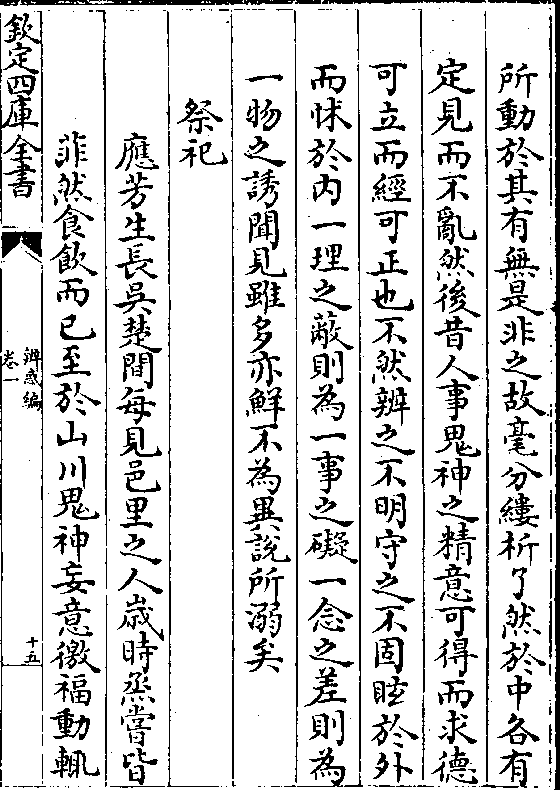 所動於其有無是非之故毫分縷析了然於中各有
定見而不亂然後昔人事鬼神之精意可得而求德
可立而經可正也不然辨之不明守之不固眩於外
而怵於内一理之蔽則為一事之礙一念之差則為
一物之誘聞見雖多亦鮮不為異說所溺矣
祭祀
應芳生長吳楚間每見邑里之人歲時烝嘗皆
菲然食飲而已至於山川鬼神妄意徼福動輒
欽定四庫全書
辨惑編
卷一
十五